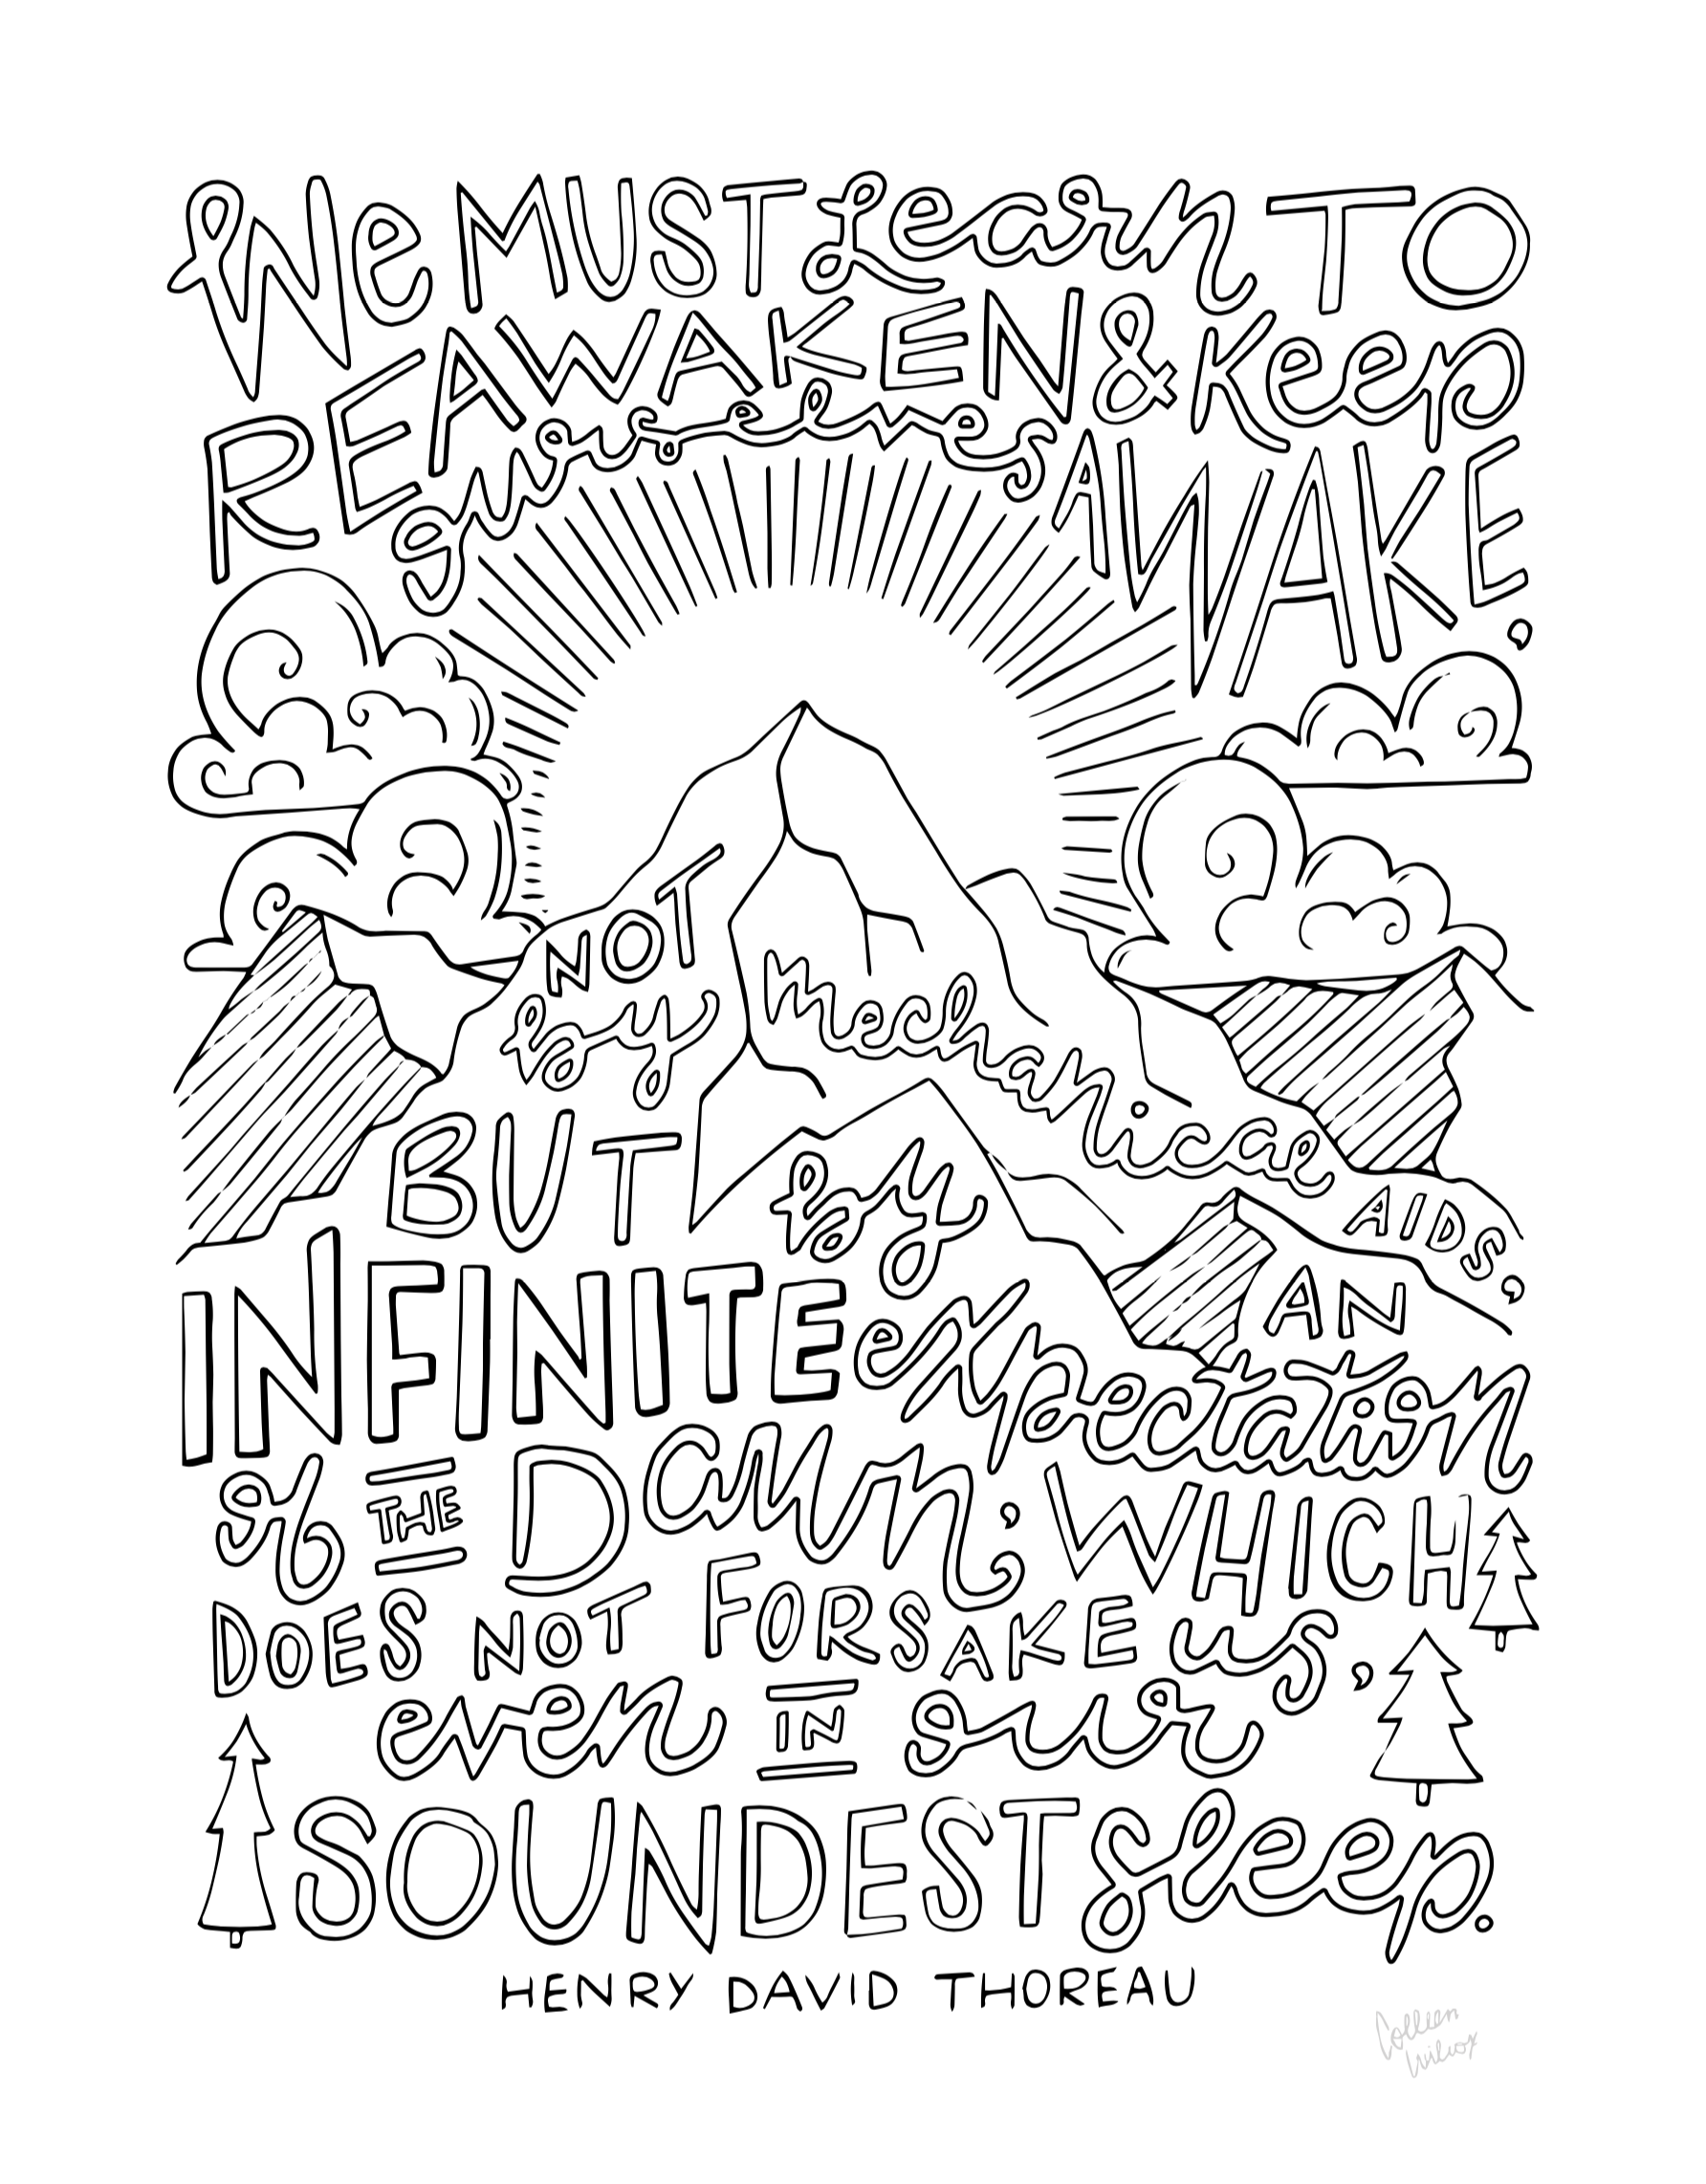 We MUST Learn TO
REAWAKEN & Keep
Ourselves AWAKE,
NOT
by Mechanical AIDS,
BUT by AN
INFINITE expectation
of THE Dawn, WHICH
DOES NOT FORSAKE us,
even IN our
SOUNDEST Sleep.
HENRY DAVID THOREAU
Colleen
Wilcox